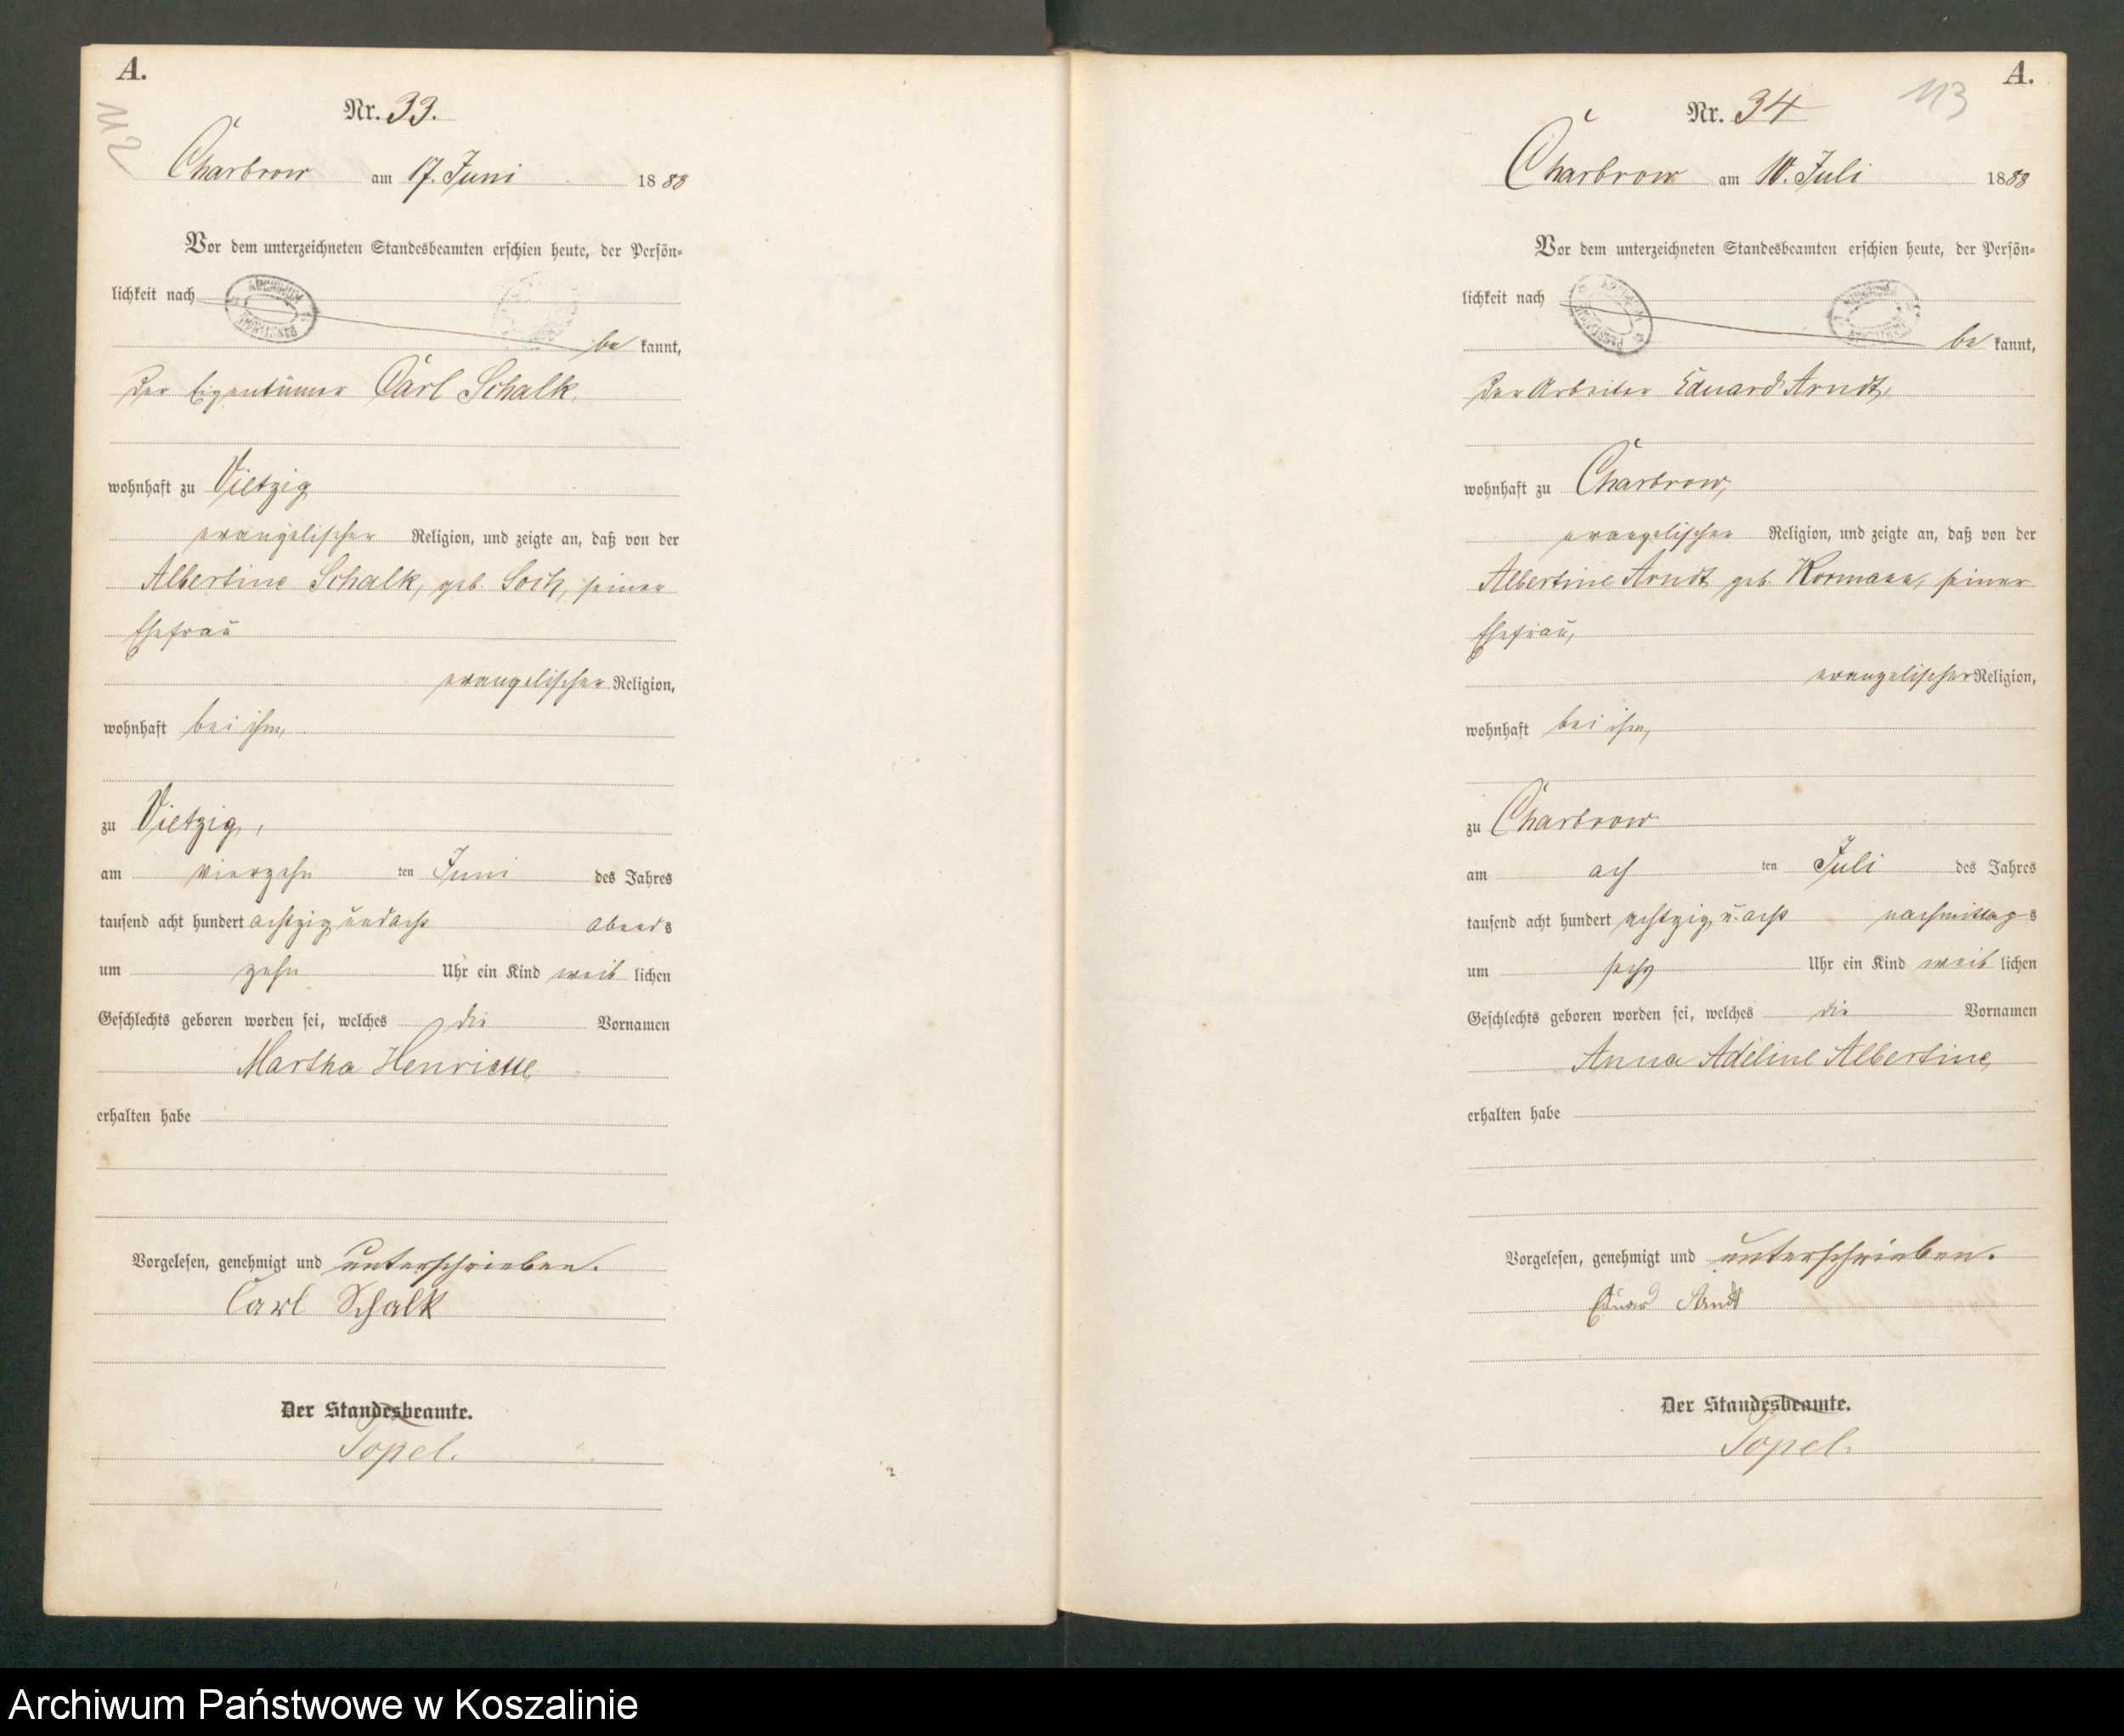 A.
112
Nr. 33.
Charbrow am 17. Juni 1888
Vor dem unterzeichneten Standesbeamten erschien heute, der Persön-
lichkeit nach
be kannt,
der Eigentümer Carl Schalk,
wohnhaft zu Vietzig
evangelischer Religion, und zeigte an, daß von der
Albertine Schalk, geb. Soth, seiner
Ehefrau
evangelischer Religion,
wohnhaft bei ihm,
zu Vietzig,
am vierzehn ten Juni des Jahres
tausend acht hundert achtzig und acht Abends
um zehn Uhr ein Kind weib lichen
Geschlechts geboren worden sei, welches die Vornamen
Martha Henriette
erhalten habe
Vorgelesen, genehmigt und unterschrieben.
Carl Schalk
Der Standesbeamte.
Topel.
A.
113
Nr. 34
Charbrow am 10. Juli 1888
Vor dem unterzeichneten Standesbeamten erschien heute, der Persön-
lichkeit nach
be kannt,
der Arbeiter Eduard Arndt,
wohnhaft zu Charbrow,
evangelischer Religion, und zeigte an, daß von der
Albertine Arndt geb. Kormann, seiner
Ehefrau,
evangelischer Religion,
wohnhaft bei ihm,
zu Charbrow
am ach ten Juli des Jahres
tausend acht hundert achtzig u. acht nachmittags
um sechs Uhr ein Kind weib lichen
Geschlechts geboren worden sei, welches die Vornamen
Anna Adeline Albertine,
erhalten habe
Vorgelesen, genehmigt und unterschrieben.
Eduard Arndt
Der Standesbeamte.
Topel.
Archiwum Państwowe w Koszalinie